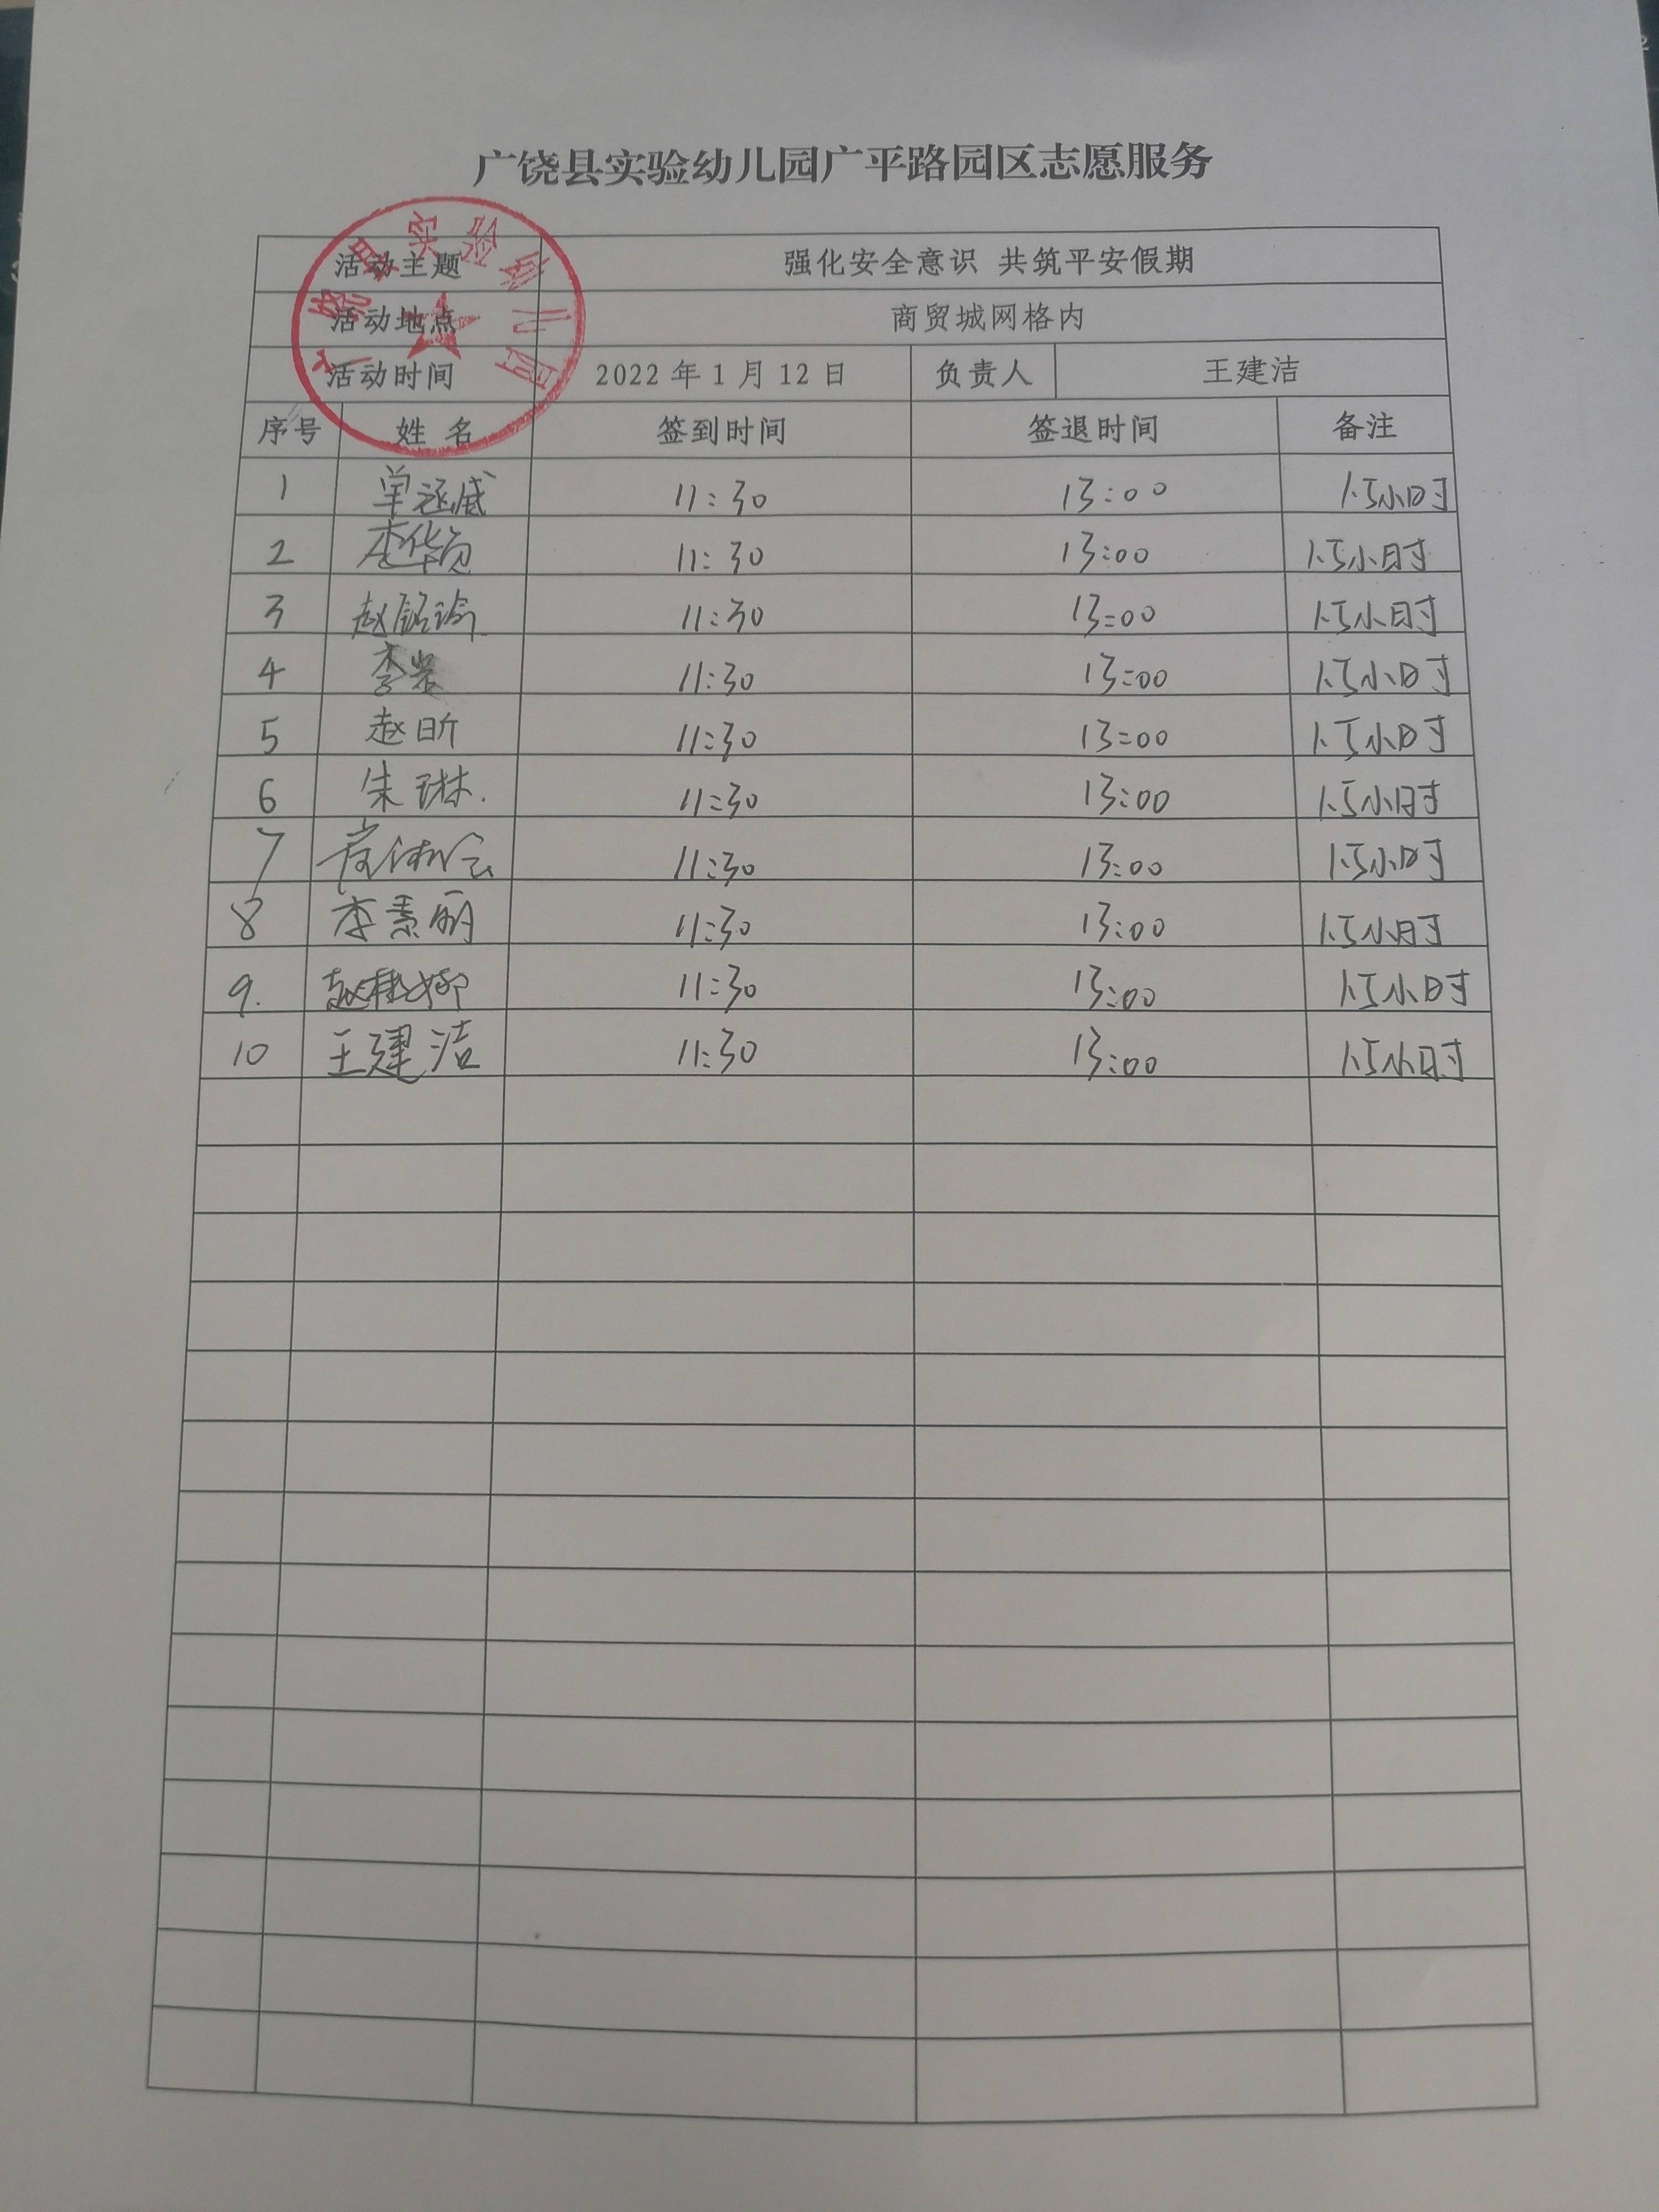 广饶县实验幼儿园广平路园区志愿服务
广饶县实验幼儿园
活动主题 强化安全意识 共筑平安假期
活动地点 商贸城网格内
活动时间 2022年1月12日 负责人 王建洁
序号 姓名 签到时间 签退时间 备注
1 11:30 13:00 1.5小时
2 11:30 13:00 1.5小时
3 赵铭瑜 11:30 13:00 1.5小时
4 11:30 13:00 1.5小时
5 赵昕 11:30 13:00 1.5小时
6 朱琳. 11:30 13:00 1.5小时
7 11:30 13:00 1.5小时
8 李素丽 11:30 13:00 1.5小时
9. 11:30 13:00 1.5小时
10 王建洁 11:30 13:00 1.5小时